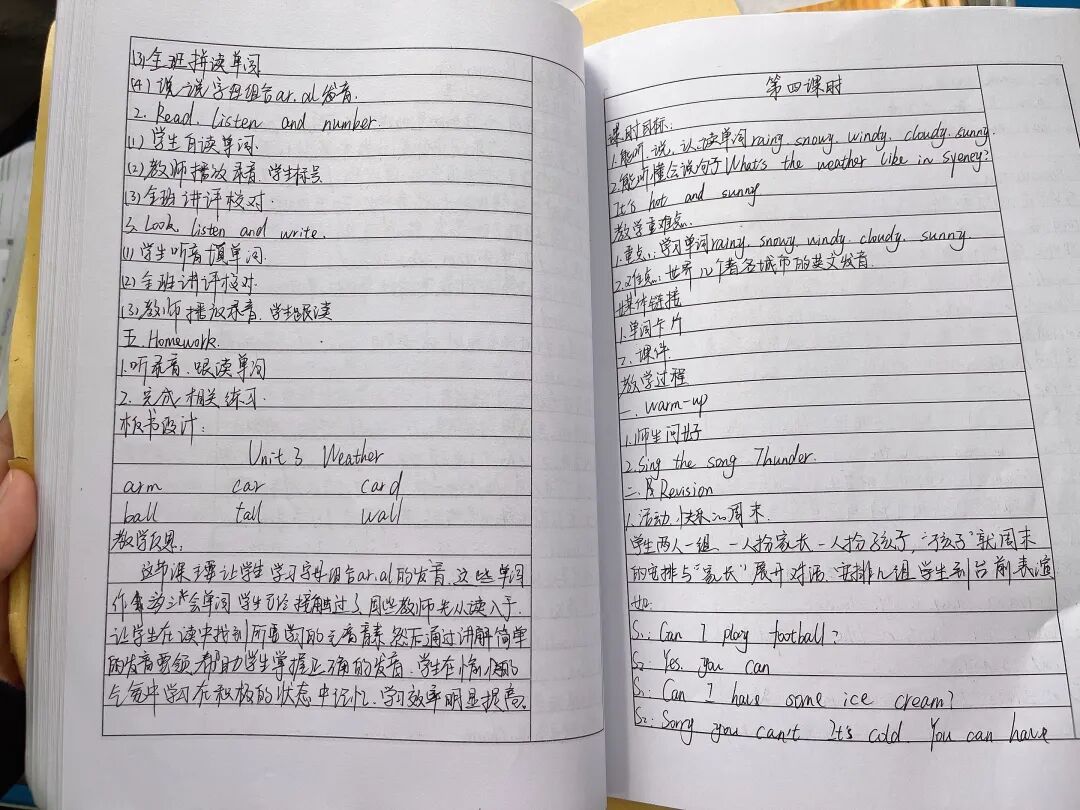 (3)全班拼读单词
(4)说一说字母组合ar.al发音.
2. Read. listen and number.
(1)学生自读单词.
(2)教师播放录音.学生标号
(3)全班讲评校对.
3. Look, listen and write.
(1)学生听音填单词.
(2)全班讲评校对.
(3)教师播放录音.学生跟读
五.Homework.
1.听录音.跟读单词
2.完成相关练习.
板书设计:
Unit 3 Weather
arm car card
ball tall wall
教学反思:
这节课主要让学生学习字母组合ar.al的发音.这些单词
作为三会单词学生已经接触过了.因此教师先从读入手.
让学生在读中找到所要学习的元音音素.然后通过讲解简单
的发音要领.帮助学生掌握正确的发音.学生在愉快的
气氛中学习在积极的状态中记忆.学习效率明显提高。
第四课时
课时目标:
1.能听、说、认、读单词rainy. snowy. windy. cloudy. sunny.
2.能听懂会说句子What's the weather like in Syeney?
It's hot and sunny.
教学重难点:
1.重点:学习单词rainy. snowy. windy. cloudy. sunny.
2.难点:世界12个著名城市的英文发音.
媒体链接
1.单词卡片
2.课件
教学过程
一. Warm-up
1.师生问好
2.Sing the song Thunder.
二.Revision
1.活动.快乐的周末.
学生两人一组.一人扮家长一人扮孩子,"孩子"就周末
的安排与"家长"展开对话.安排几组学生到台前表演
如:
S1: Can I play football?
S2: Yes. you can
S1: Can I have some ice cream?
S2: Sorry you can't It's cold. You can have